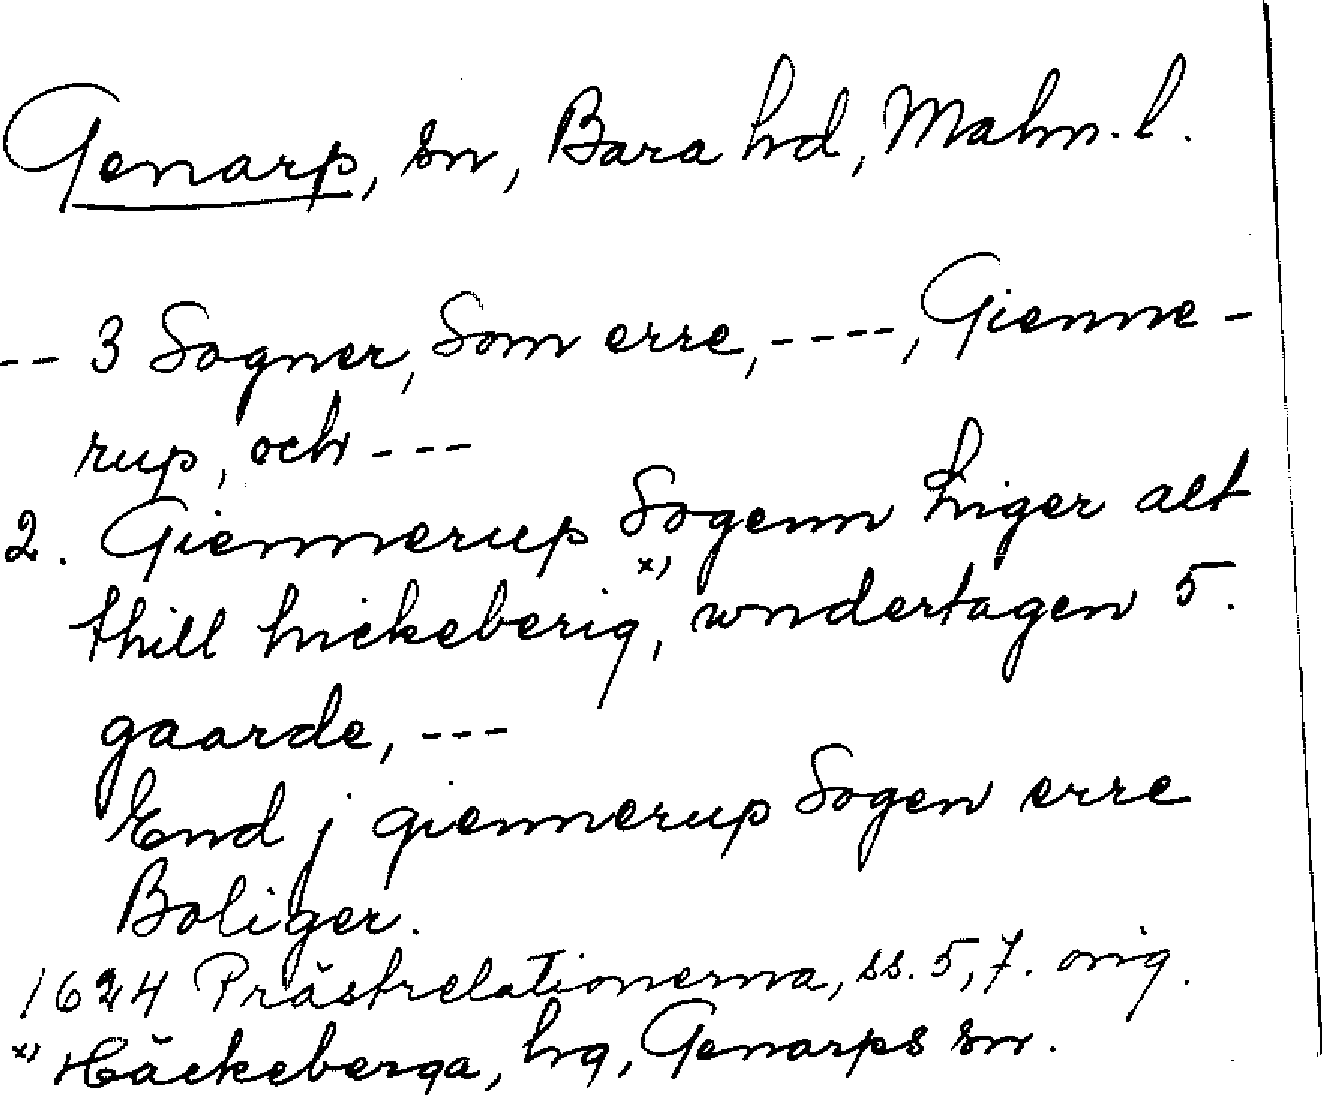 Genarp, sn, Bara hd, Malm. l.
-- 3 Sogner, Som erre, ----, Gienne-
rup, och ---
2. Giennerup Sogenn higer alt
thill hickeberig x), wndertagen 5.
gaarde, ---
End j giennerup Sogen erre
Boliger.
1624 Prästrelationerna, ss. 5, 7. orig.
x) Häckeberga, hg, Genarps sn.